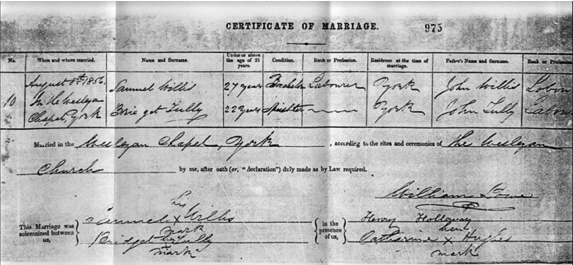 CERTIFICATE OF MARRIAGE. 975
No. When and where married. Name and Surname. Under or above the age of 21 years Condition. Rank or Profession. Residence at the time of marriage. Father's Name and Surname. Rank or Profession
10 August 8th 1856 Samuel Willis 27 years Bachelr Labourer York John Willis Labou
In Wesleyan Bridget Tully 22 years Spinster York John Tully Labou
Chapel, York
Married in the Wesleyan Chapel, York, according to the rites and ceremonies of the Wesleyan
Church by me, after oath (or, "declaration") duly made as by Law required.
William Lowe
This Marriage was solemnized between us,
Samuel x Willis
his mark
Bridget x Tully
her mark
in the presence of us,
Henry Holloway
Catharine x Hughes
her mark